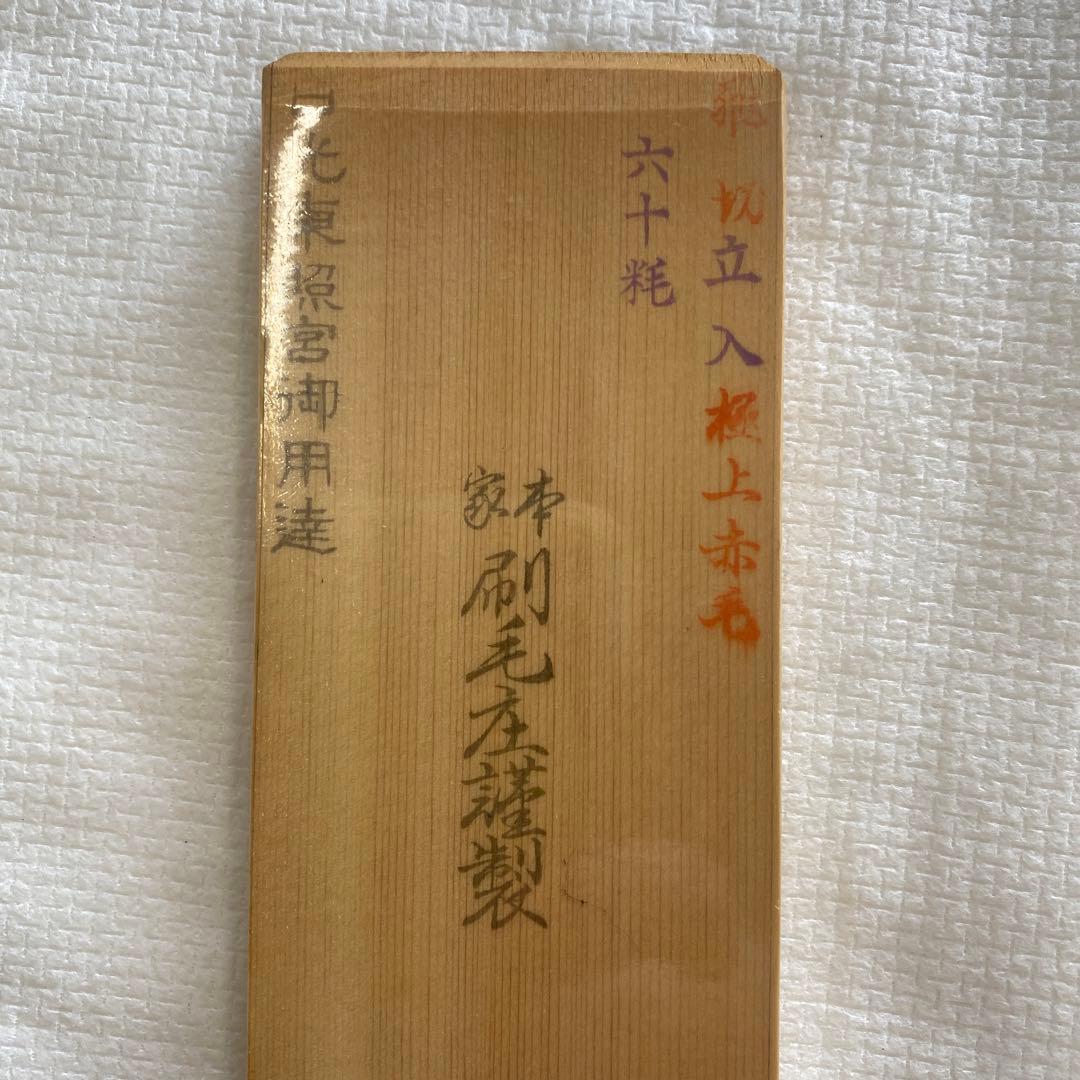 飛切立入極上赤毛
六十粍
本家
刷毛庄謹製
日光東照宮御用達